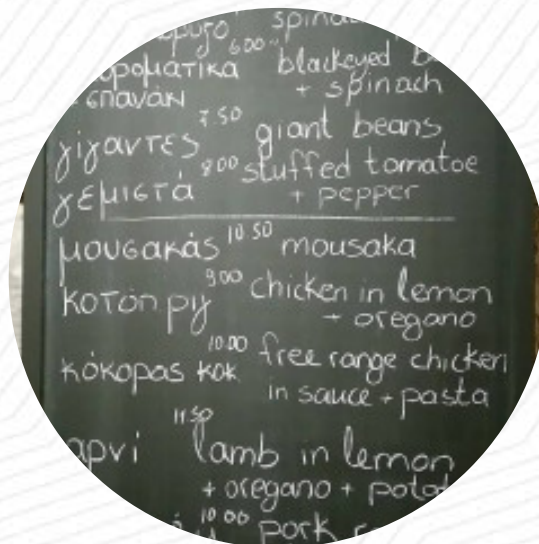 spina
6.00
μαυρομάτικα blackeyed
σπανάκ + spinach
γίγαντες 7.50 giant beans
γεμιστά 8.00 stuffed tomatoe
+ pepper
μουσακάς 10.50 mousaka
κοτόπ ρυ 9.00 chicken in lemon
+ oregano
κόκορας κοκ 10.00 free range chicken
in sauce + pasta
αρνί 11.50 lamb in lemon
+ oregano + potat
10.00 pork